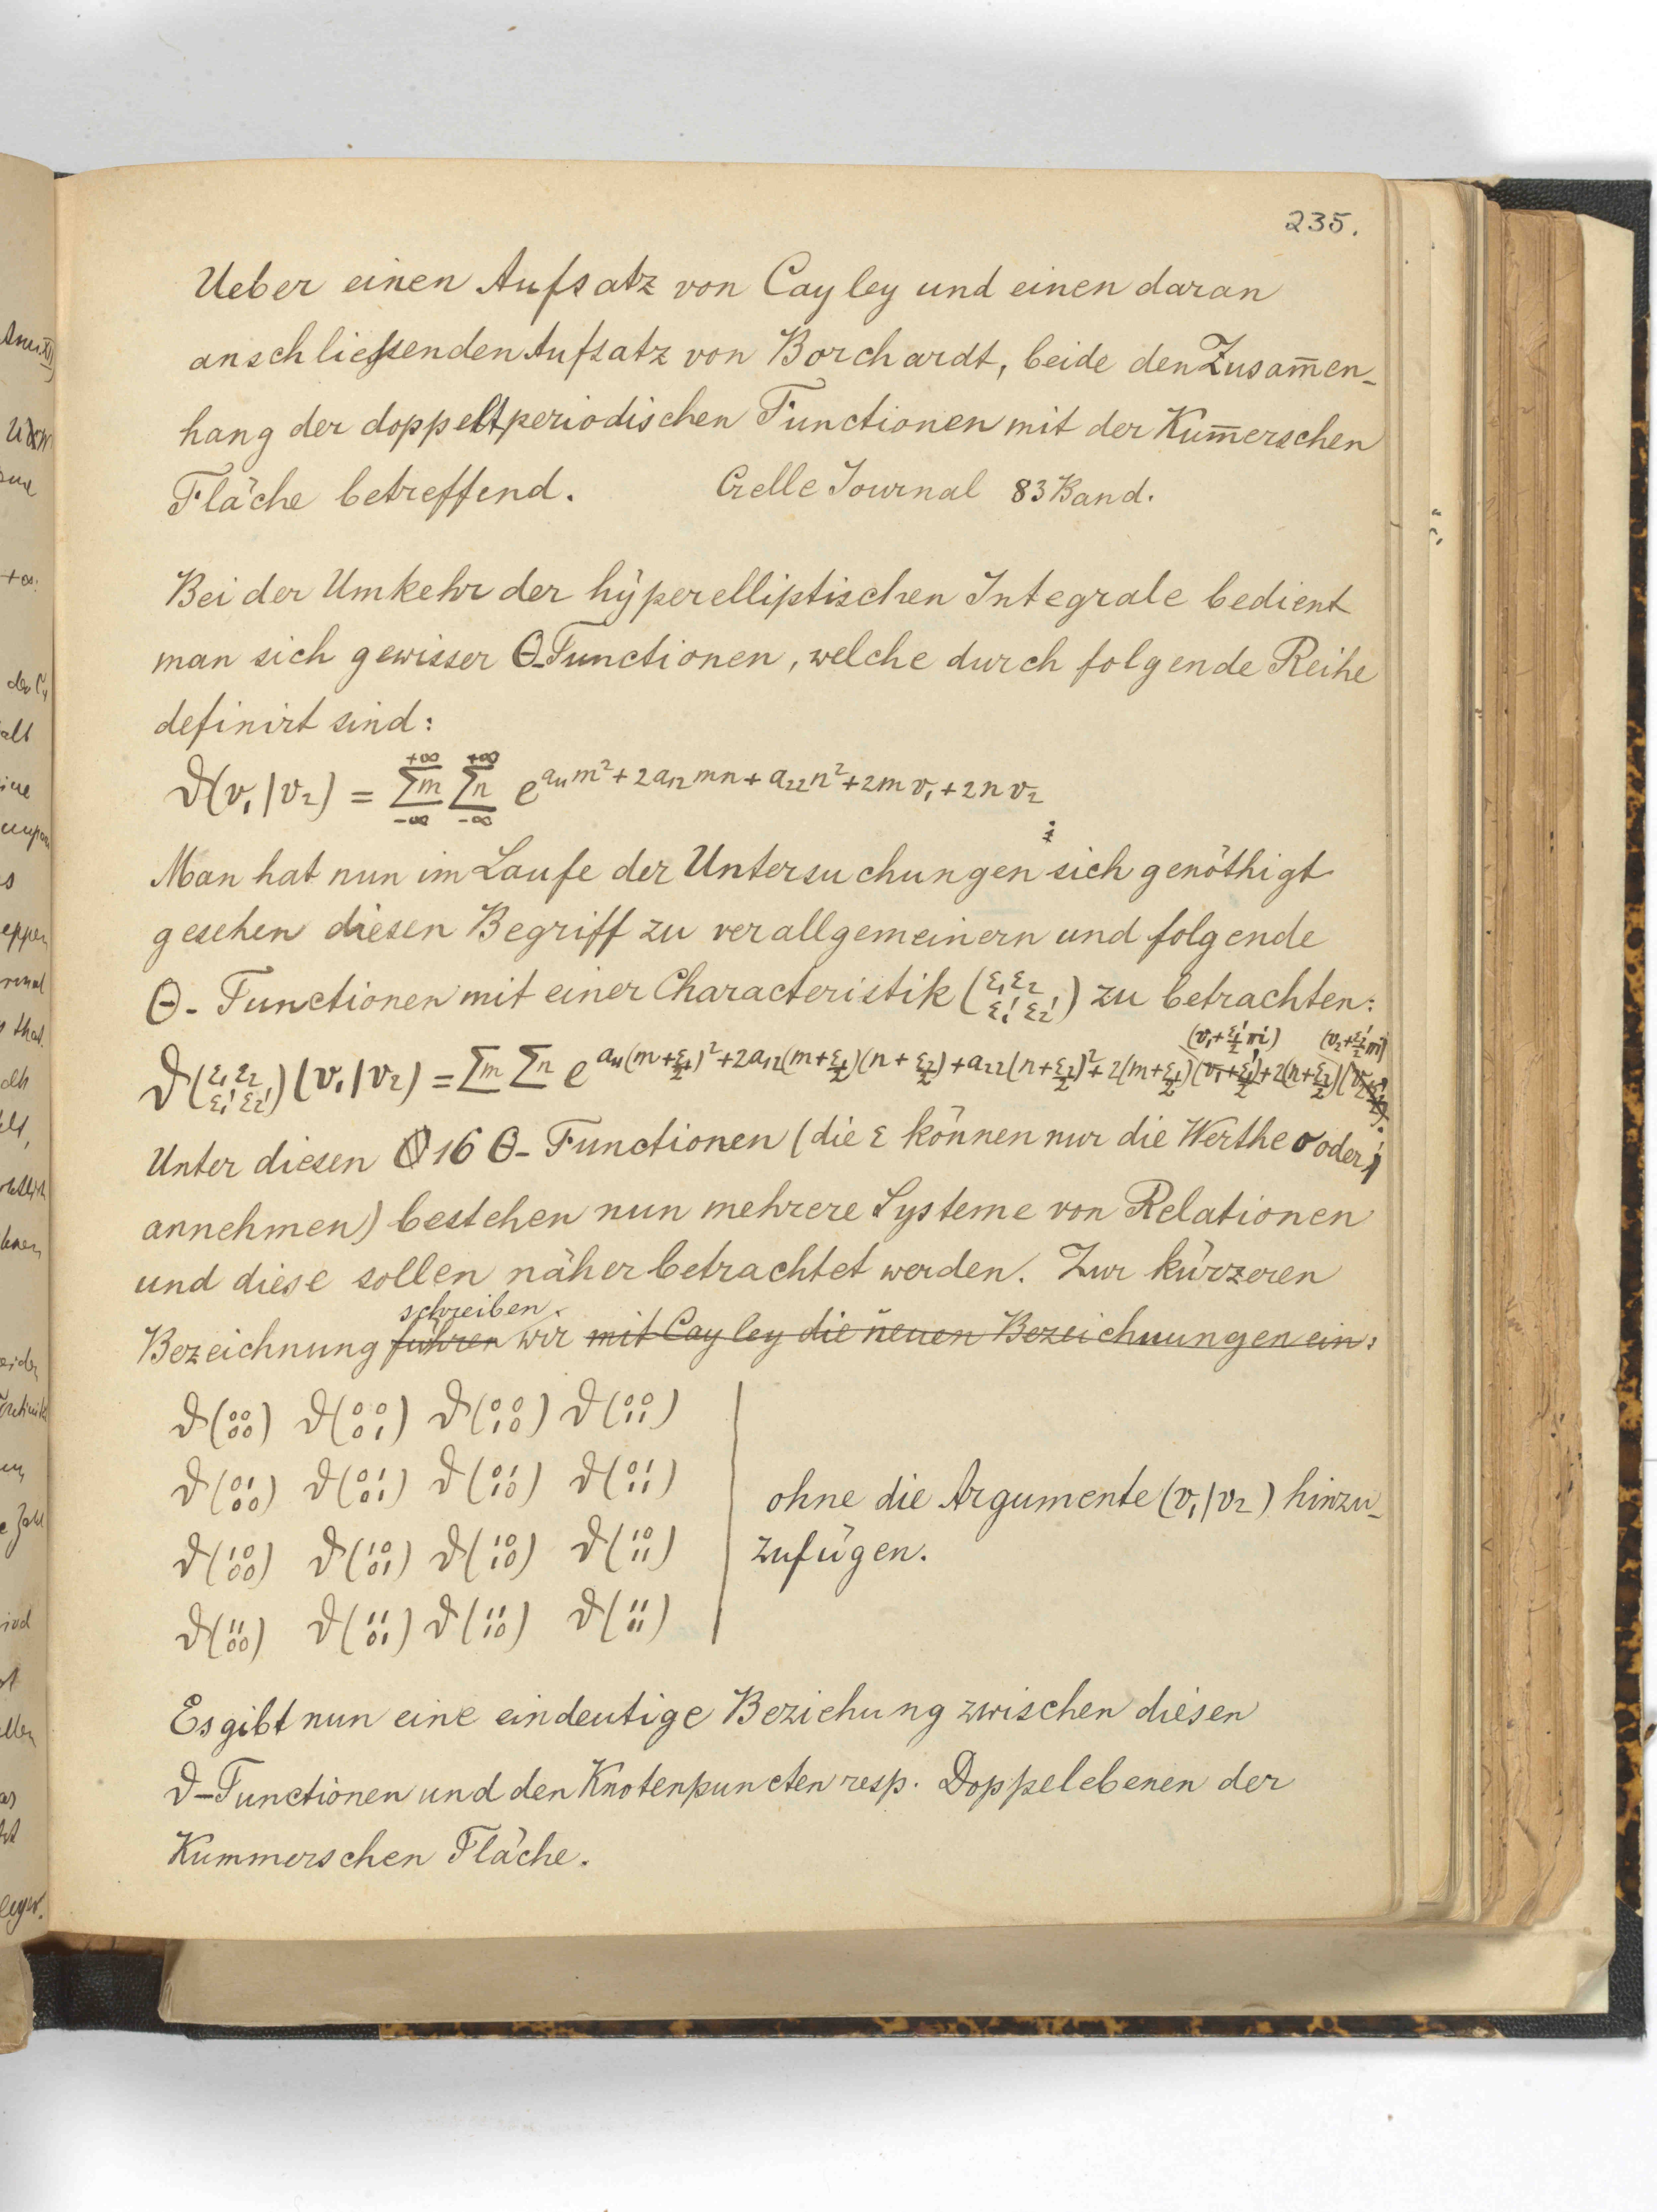 235.
Ueber einen Aufsatz von Cayley und einen daran
anschließenden Aufsatz von Borchardt, beide den Zusam̅en-
hang der doppeltperiodischen Functionen mit der Kum̅erschen
Fläche betreffend. Crelle Journal 83 Band.
Bei der Umkehr der hÿperelliptischen Integrale bedient
man sich gewisser Θ-Functionen, welche durch folgende Reihe
definirt sind:
ϑ(v₁|v₂) = Σm_{-∞}^{+∞} Σn_{-∞}^{+∞} e^{a₁₁m² + 2a₁₂mn + a₂₂n² + 2mv₁ + 2nv₂};
Man hat nun im Laufe der Untersuchungen sich genöthigt
gesehen diesen Begriff zu verallgemeinern und folgende
Θ-Functionen mit einer Characteristik (ε₁ ε₂ / ε₁' ε₂') zu betrachten:
(v₁+ε₁'/2 πi) (v₂+ε₂'/2 πi)
ϑ(ε₁ ε₂ / ε₁' ε₂')(v₁|v₂) = Σm Σn e^{a₁₁(m+ε₁/2)² + 2a₁₂(m+ε₁/2)(n+ε₂/2) + a₂₂(n+ε₂/2)² + 2(m+ε₁/2)(v₁+ε₁'/2) + 2(n+ε₂/2)(v₂+ε₂'/2)}
Unter diesen 16 Θ-Functionen (die ε können nur die Werthe 0 oder 1
annehmen) bestehen nun mehrere Systeme von Relationen
und diese sollen näher betrachtet werden. Zur kürzeren
schreiben
Bezeichnung führen wir mit Cayley die neuen Bezeichnungen ein:
ϑ(00/00) ϑ(00/01) ϑ(00/10) ϑ(00/11)
ϑ(01/00) ϑ(01/01) ϑ(01/10) ϑ(01/11)
ohne die Argumente (v₁|v₂) hinzu-
ϑ(10/00) ϑ(10/01) ϑ(10/10) ϑ(10/11)
zufügen.
ϑ(11/00) ϑ(11/01) ϑ(11/10) ϑ(11/11)
Es gibt nun eine eindeutige Beziehung zwischen diesen
ϑ-Functionen und den Knotenpuncten resp. Doppelebenen der
Kummerschen Fläche.